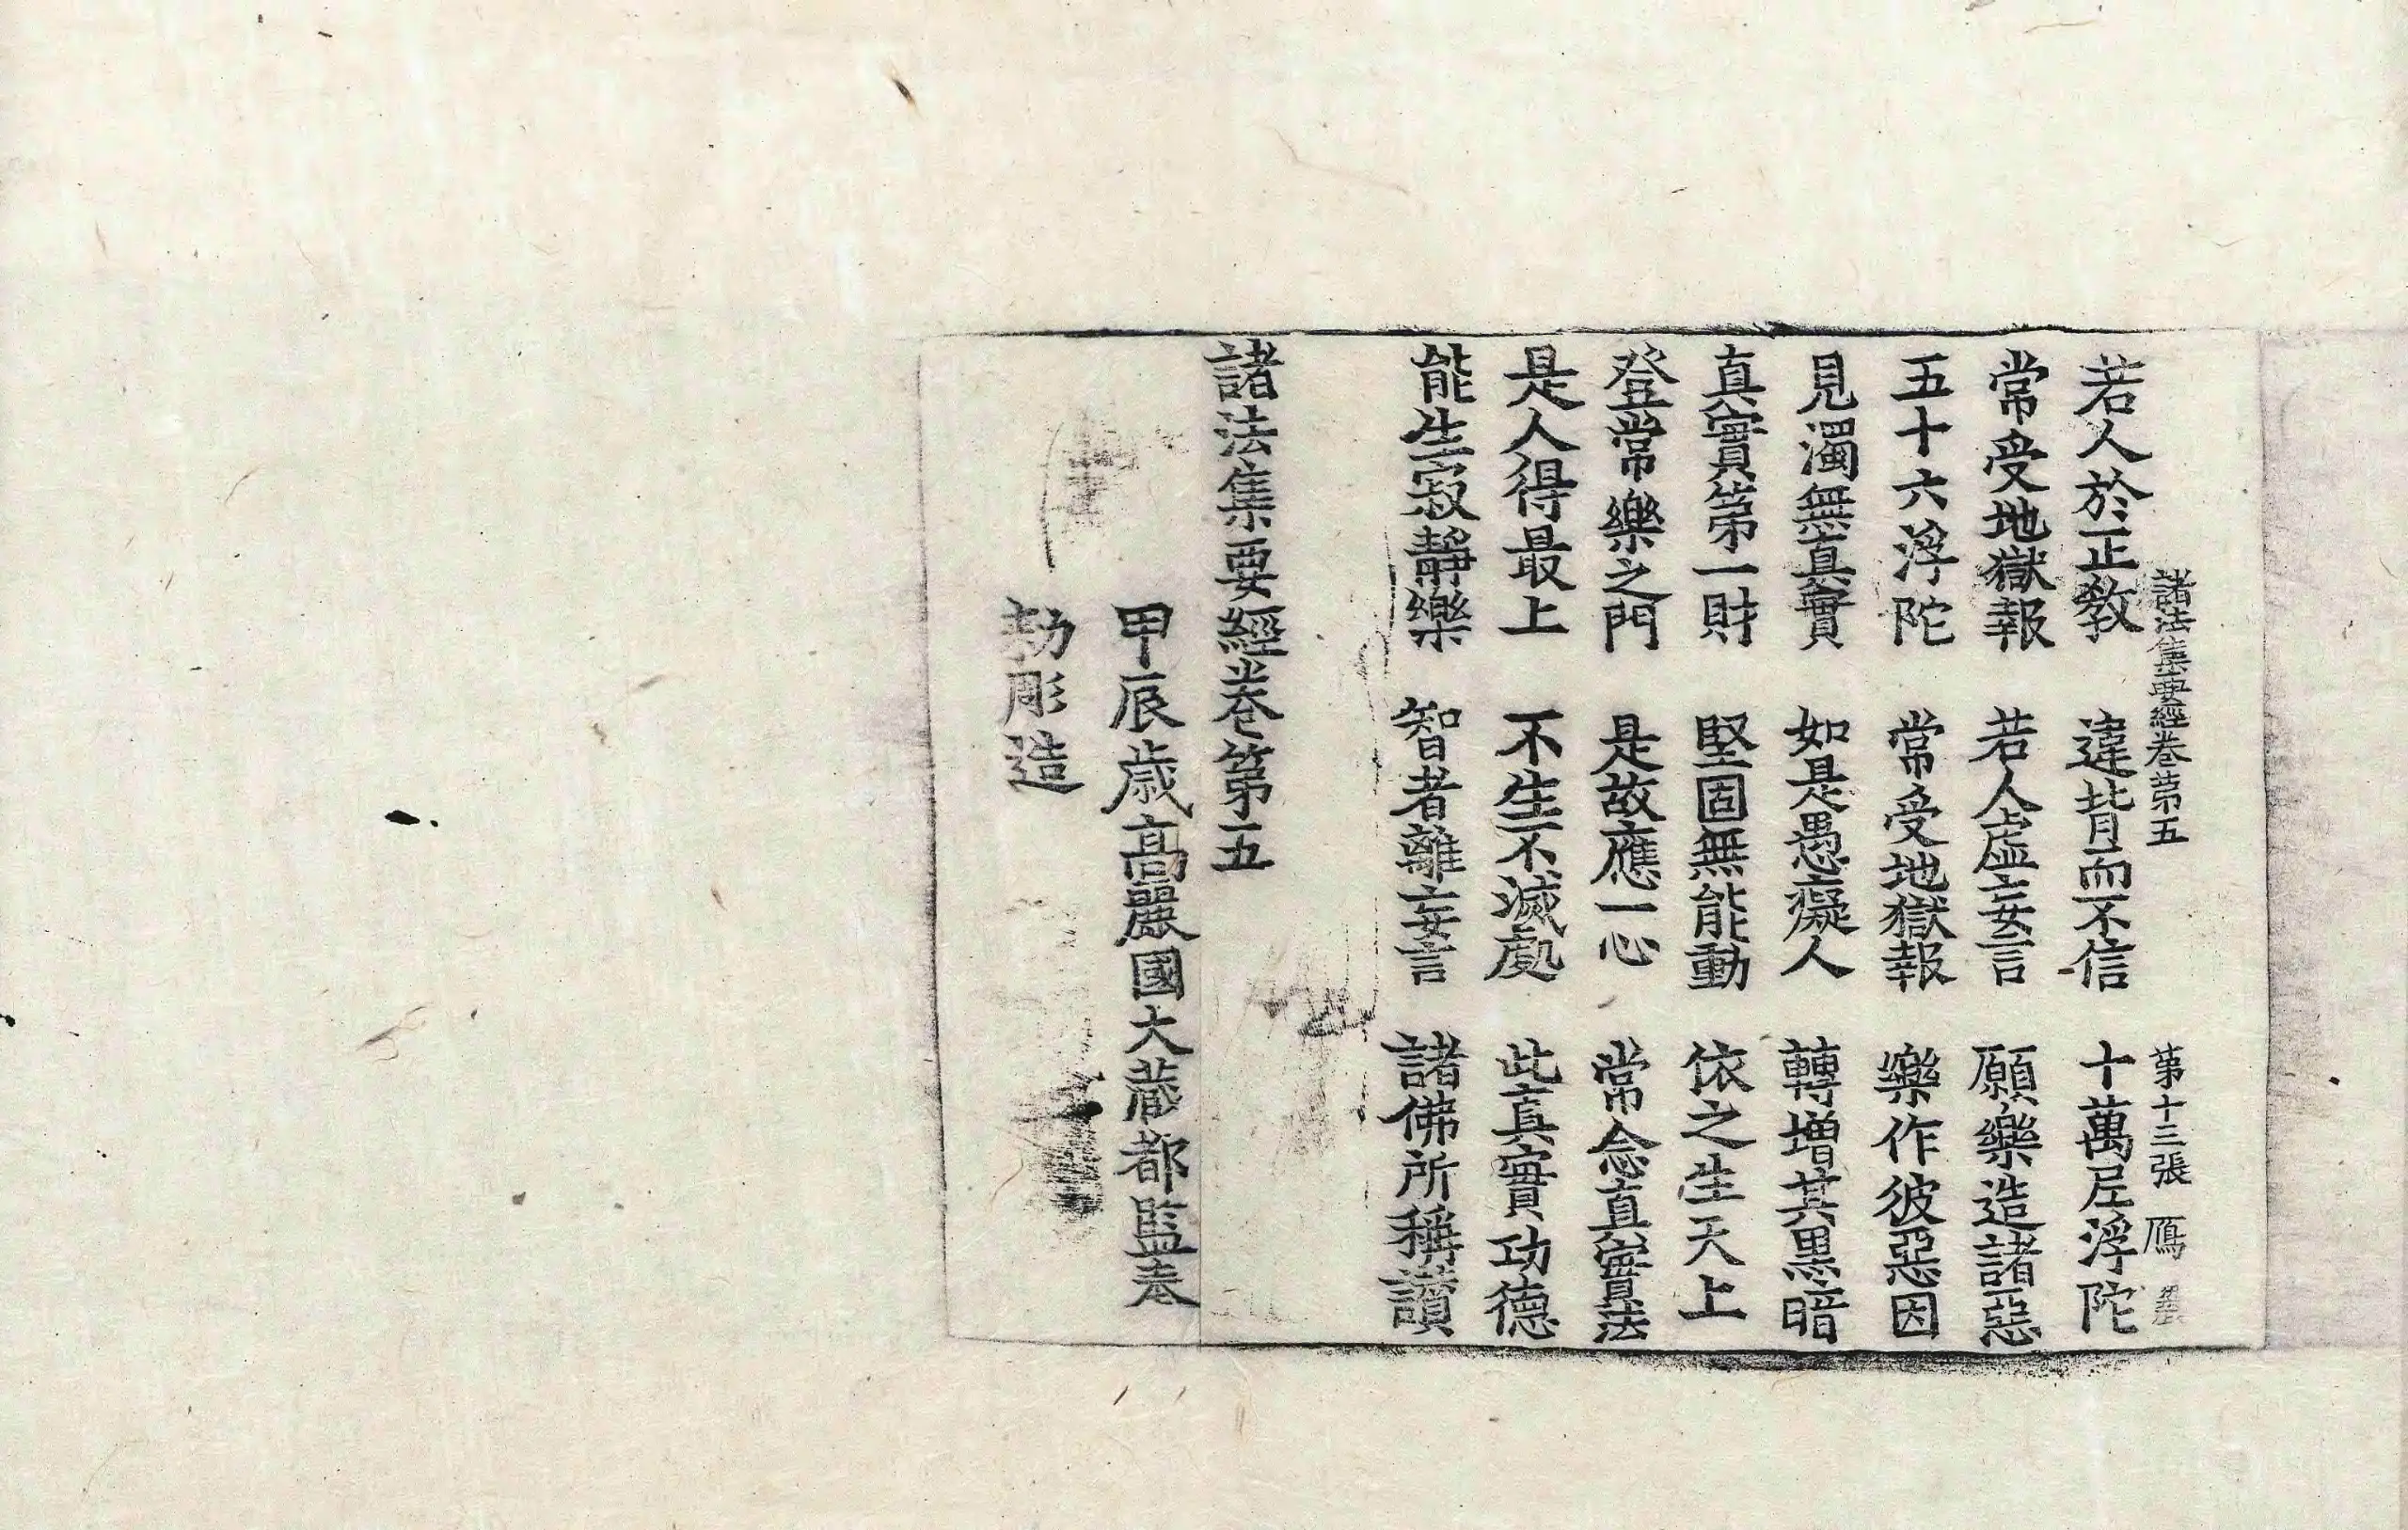 諸法集要經卷第五 第十三張 鴈
若人於正教 違背而不信 十萬尼浮陀
常受地獄報 若人虛妄言 願樂造諸惡
五十六浮陀 常受地獄報 樂作彼惡因
見濁無真實 如是愚癡人 轉增其黑暗
真實第一財 堅固無能動 依之生天上
登常樂之門 是故應一心 常念真實法
是人得最上 不生不滅處 此真實功德
能生寂靜樂 智者離妄言 諸佛所稱讚
諸法集要經卷第五
甲辰歲高麗國大藏都監奉
勑彫造